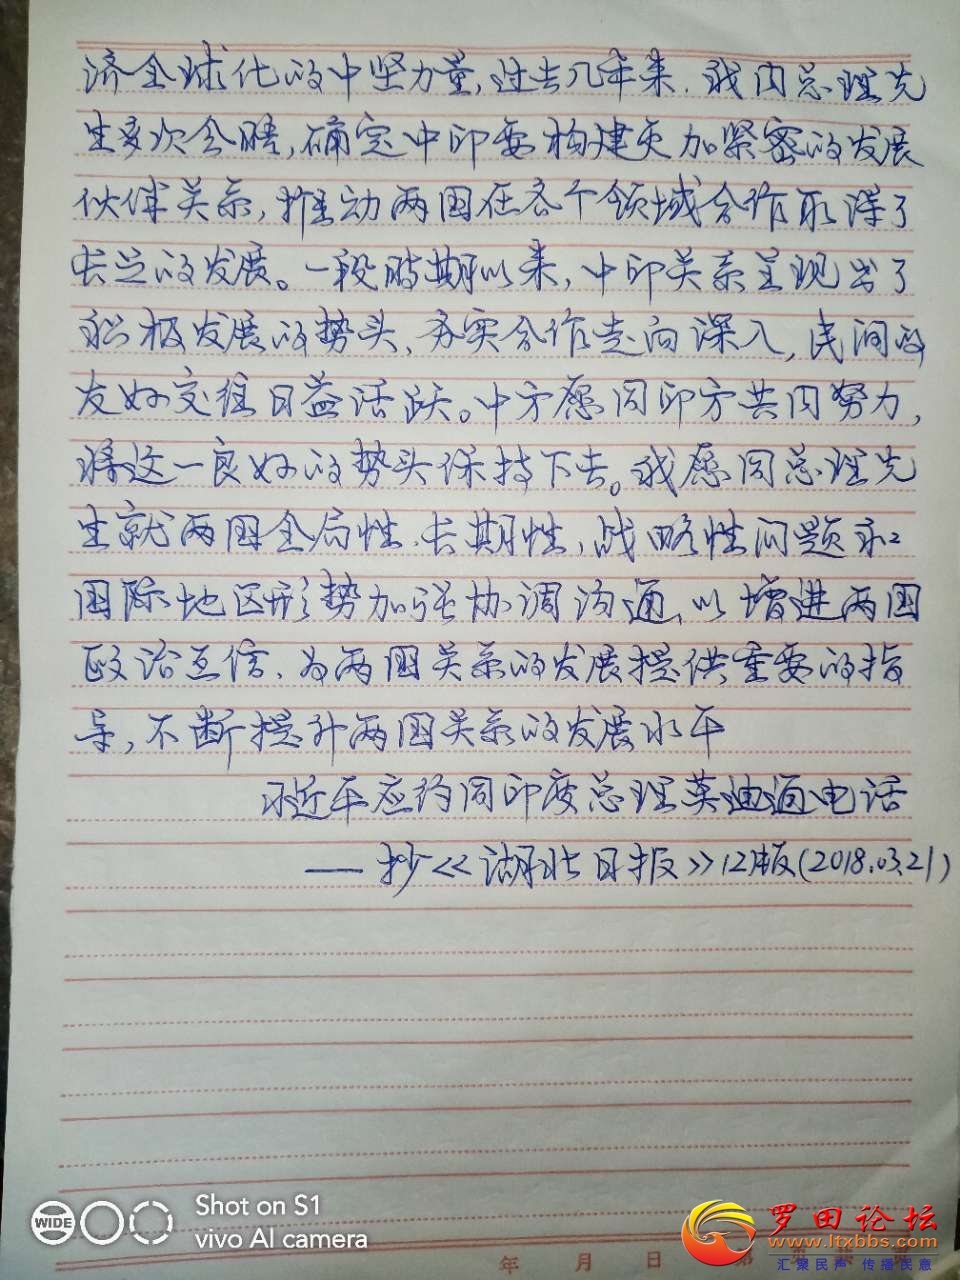 济全球化的中坚力量,过去几年来,我同总理先
生多次会晤,确定中印要构建更加紧密的发展
伙伴关系,推动两国在各个领域合作取得了
长足的发展。一段时期以来,中印关系呈现出了
积极发展的势头,务实合作走向深入,民间的
友好交往日益活跃。中方愿同印方共同努力,
将这一良好的势头保持下去。我愿同总理先
生就两国全局性、长期性,战略性问题和
国际地区形势加强协调沟通,以增进两国
政治互信、为两国关系的发展提供重要的指
导,不断提升两国关系的发展水平
习近平应约同印度总理莫迪通电话
——抄《湖北日报》12版(2018.03.21)
WIDE
Shot on S1
vivo AI camera
年 月 日 第
罗田论坛
www.ltxbbs.com
汇聚民声 传播民意